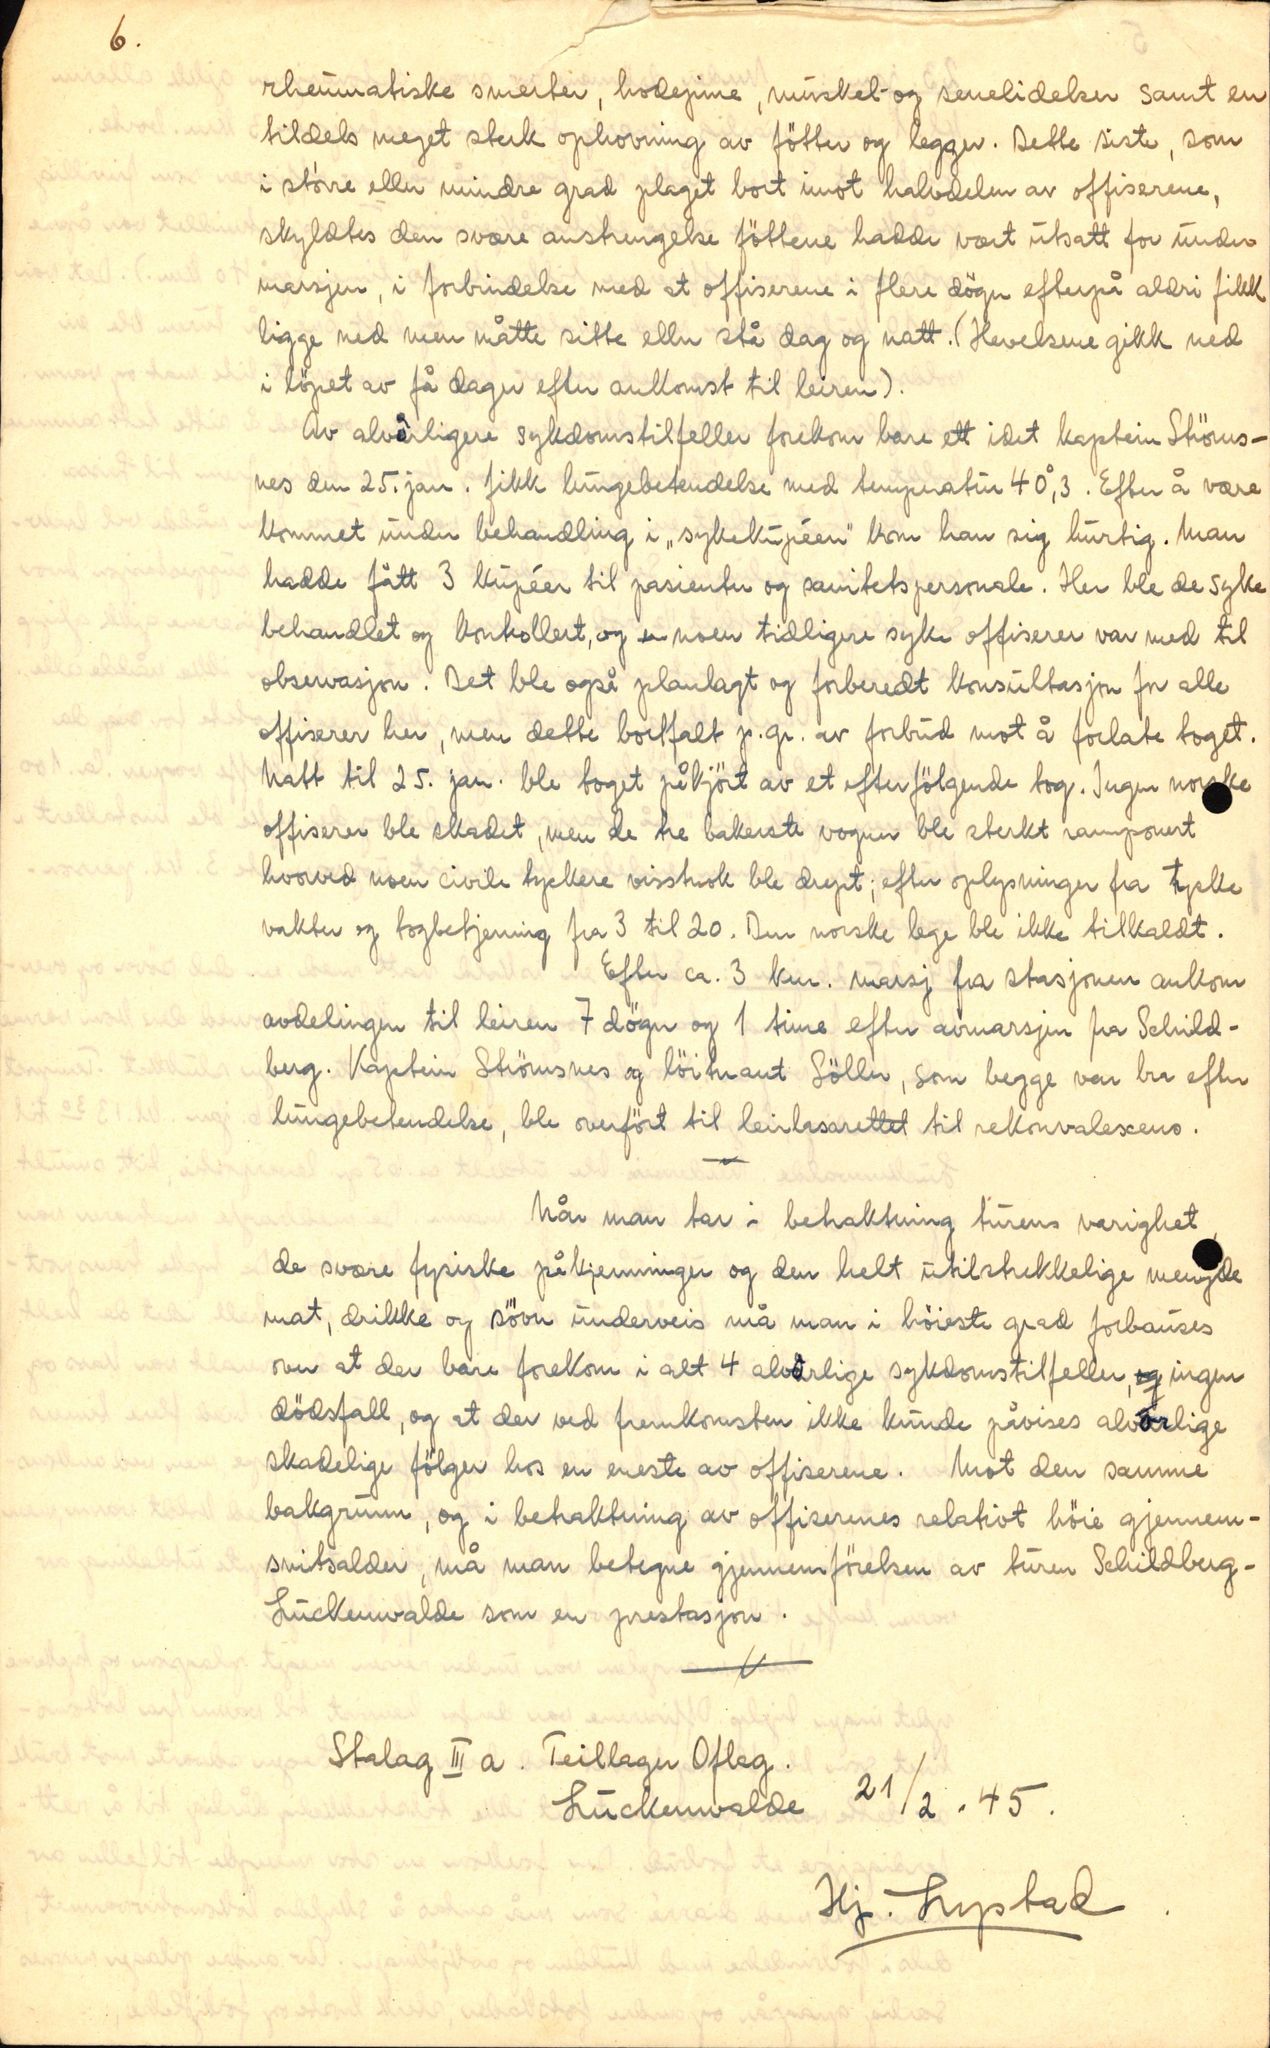 6.
rheumatiske smerter, hodepine, muskel- og senelidelser samt en
tildels meget sterk ophovning av fötter og legger. Dette siste, som
i større eller mindre grad plaget bort imot halvdelen av offiserene,
skyldtes den svære anstrengelse föttene hadde vært utsatt for under
marsjen, i forbindelse med at offiserene i flere dögn efterpå aldri fikk
ligge ned men måtte sitte eller stå dag og natt. (Hevelsene gikk ned
i löpet av få dager efter ankomst til leiren).
Av alvorligere sykdomstilfeller forekom bare ett idet kaptein Ströms-
nes den 25. jan. fikk lungebetendelse med temperatur 40°,3. Efter å være
kommet under behandling i „sykekupéen" kom han sig hurtig. Man
hadde fått 3 kupéer til pasienter og sanitetspersonale. Her ble de syke
behandlet og kontrollert, og noen tidligere syke offiserer var med til
observasjon. Det ble også planlagt og forberedt konsultasjon for alle
offiserer her, men dette bortfalt p.gr. av forbud mot å forlate toget.
Natt til 25. jan. ble toget påkjört av et efterfölgende tog. Ingen norske
offiserer ble skadet, men de tre bakerste vogner ble sterkt ramponert
hvorved noen civile tyskere visstnok ble drept; efter oplysninger fra tyske
vakter og togbetjening fra 3 til 20. Den norske lege ble ikke tilkaldt.
Efter ca. 3 km. marsj fra stasjonen ankom
avdelingen til leiren 7 dögn og 1 time efter avmarsjen fra Schild-
berg. Kaptein Strömsnes og löitnant Söller, som begge var bra efter
lungebetendelse, ble overfört til leirlasarettet til rekonvalesens.
Når man tar i betraktning turens varighet,
de svære fysiske påkjenninger og den helt utilstrekkelige mengde
mat, drikke og sövn underveis må man i höieste grad forbauses
over at der bare forekom i alt 4 alvorlige sykdomstilfeller, og ingen
dödsfall, og at der ved fremkomsten ikke kunde påvises alvorlige
skadelige fölger hos en eneste av offiserene. Mot den samme
bakgrunn, og i betraktning av offiserenes relativt höie gjennem-
snitsalder, må man betegne gjennemförelsen av turen Schildberg-
Luckenwalde som en prestasjon.
Stalag III a. Teillager Oflag.
Luckenwalde 21/2. 45.
Hj. Lystad